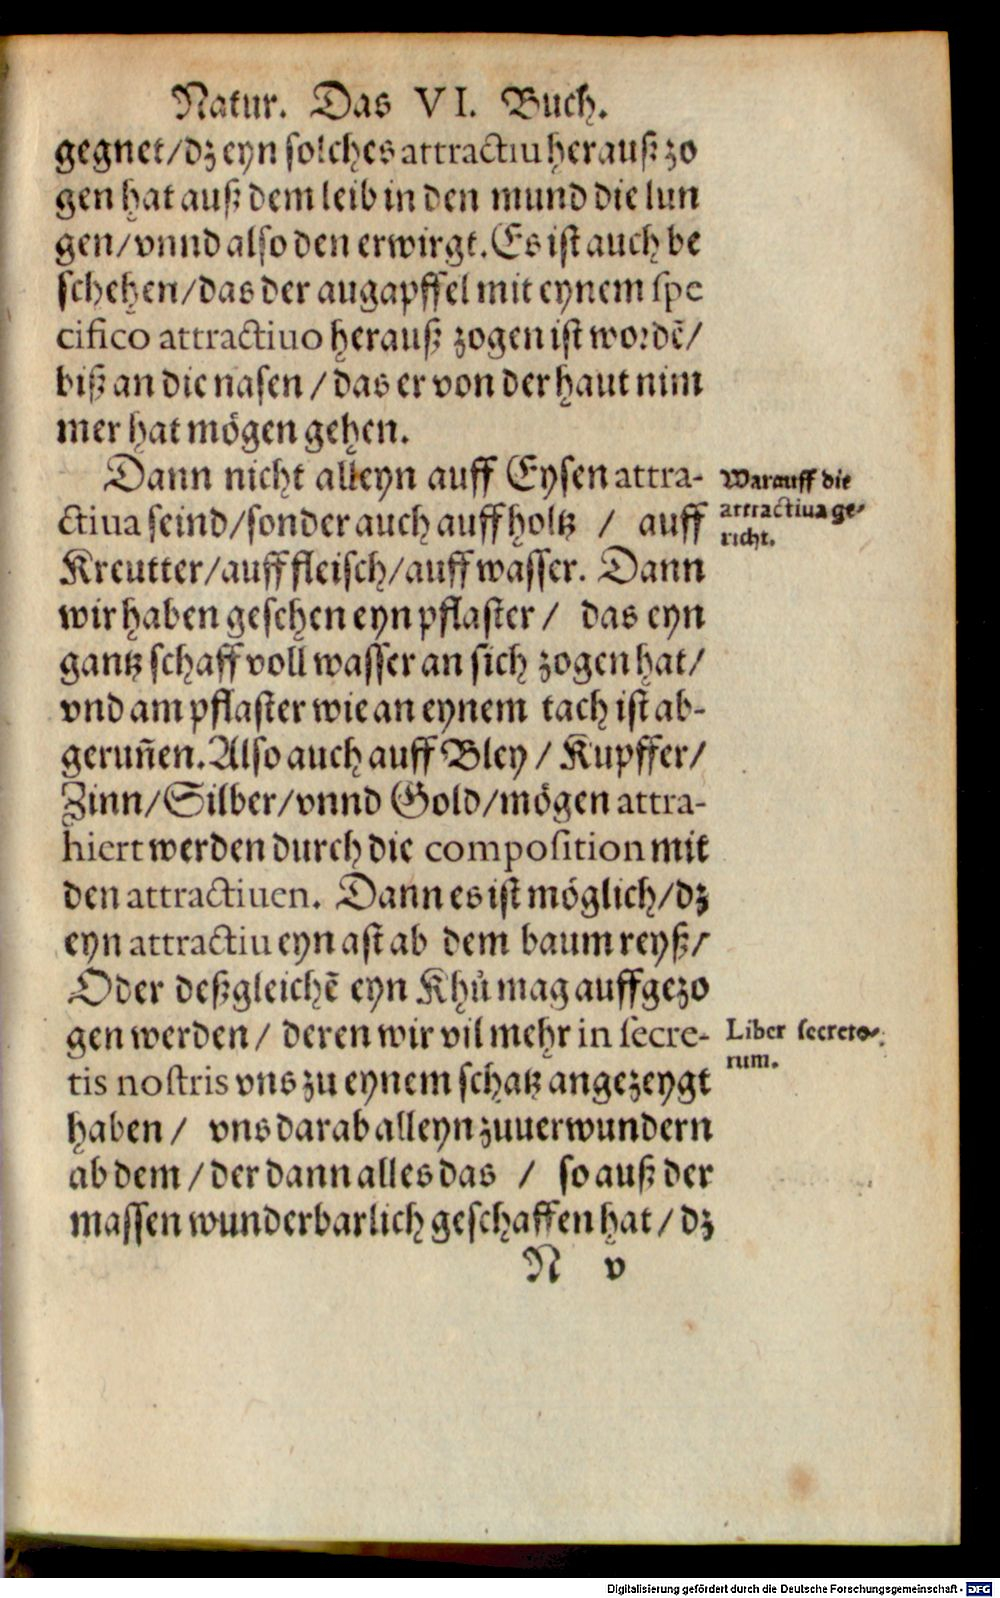 Natur. Das VI. Buch.
gegnet/dz eyn solches attractiu herauß zo
gen hat auß dem leib in den mund die lun
gen/vnnd also den erwirgt. Es ist auch be
schehen/das der augapffel mit eynem spe
cifico attractiuo herauß zogen ist wordē/
biß an die nasen / das er von der haut nim
mer hat mögen gehen.
Dann nicht alleyn auff Eysen attra-
ctiua seind/sonder auch auff holtz / auff
Kreutter/auff fleisch/auff wasser. Dann
wir haben gesehen eyn pflaster / das eyn
gantz schaff voll wasser an sich zogen hat/
vnd am pflaster wie an eynem tach ist ab-
geruñen. Also auch auff Bley / Kupffer/
Zinn/Silber/vnnd Gold/mögen attra-
hiert werden durch die composition mit
den attractiuen. Dann es ist möglich/dz
eyn attractiu eyn ast ab dem baum reyß/
Oder deßgleichē eyn Khů mag auffgezo
gen werden / deren wir vil mehr in secre-
tis nostris vns zu eynem schatz angezeygt
haben / vns darab alleyn zuuerwundern
ab dem / der dann alles das / so auß der
massen wunderbarlich geschaffen hat / dz
N v
Warauff die
attractiua ge-
richt.
Liber secreto-
rum.
Digitalisierung gefördert durch die Deutsche Forschungsgemeinschaft - DFG